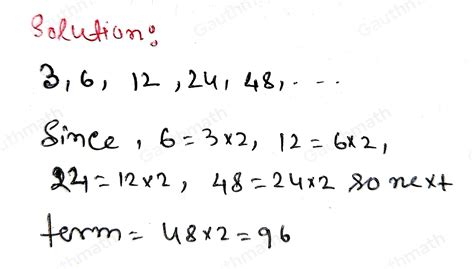 Solution:
3, 6, 12, 24, 48, ...
Since, 6 = 3×2, 12 = 6×2,
24 = 12×2, 48 = 24×2 so next
term = 48×2 = 96